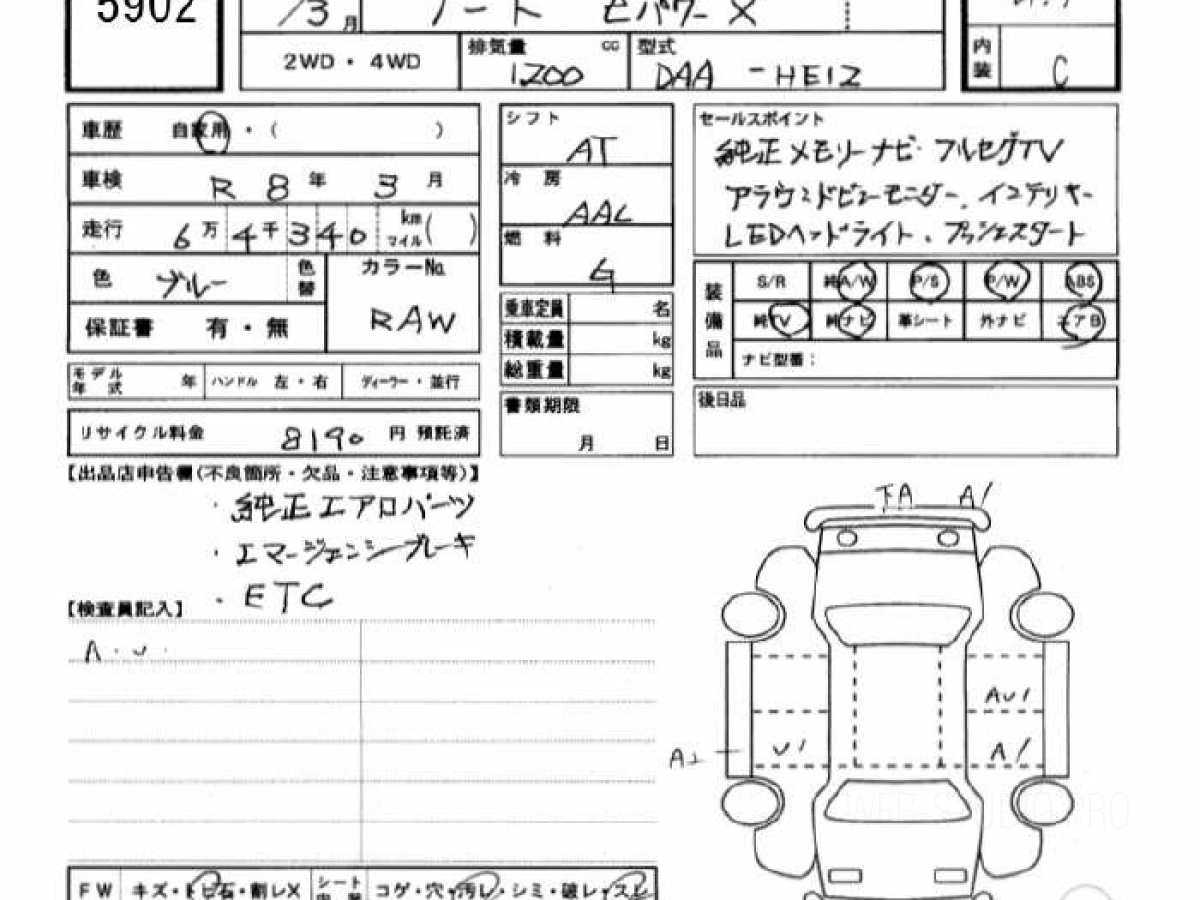 5902
/3月 ノート eパワー X
2WD・4WD 排気量 1200 cc 型式 DAA-HE12
内装 C
車歴 自家用・( )
車検 R8年3月
走行 6万4千340 km マイル( )
色 ブルー 色替 カラーNo. RAW
保証書 有・無
モデル年式 年 ハンドル 左・右 ディーラー・並行
リサイクル料金 8190円 預託済
シフト AT
冷房 AAC
燃料 G
乗車定員 名
積載量 kg
総重量 kg
書類期限 月 日
セールスポイント
純正メモリーナビ・フルセグTV
アラウンドビューモニター、インテリキー
LEDヘッドライト、プッシュスタート
装備品 S/R 純A/W P/S P/W ABS
純TV 純ナビ 革シート 外ナビ エアB
ナビ型番:
後日品
【出品店申告欄(不良箇所・欠品・注意事項等)】
・純正エアロパーツ
・エマージェンシーブレーキ
・ETC
【検査員記入】
A・U・
A1
AU1
U1
A1
WEB-STUDIO.PRO
FW キズ・トビ石・割レX シート コゲ・穴・汚レ・シミ・破レ・スレ